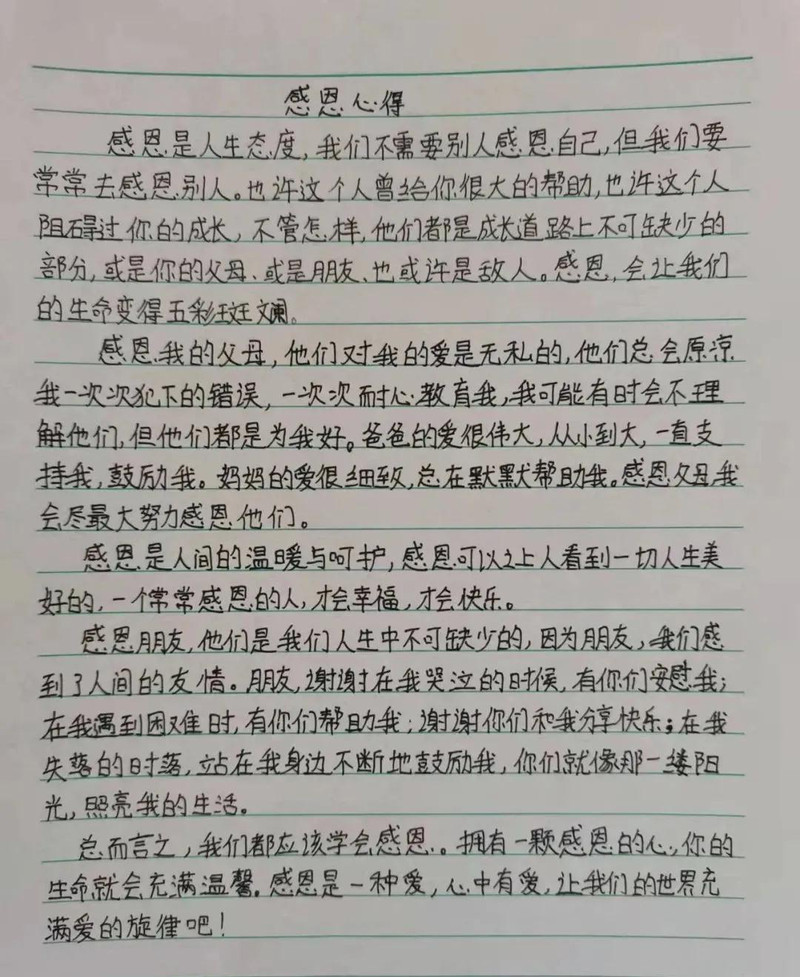 感恩心得
感恩是人生态度,我们不需要别人感恩自己,但我们要
常常去感恩别人。也许这个人曾给你很大的帮助,也许这个人
阻碍过你的成长,不管怎样,他们都是成长道路上不可缺少的
部分,或是你的父母、或是朋友、也或许是敌人。感恩,会让我们
的生命变得五彩斑斓。
感恩我的父母,他们对我的爱是无私的,他们总会原凉
我一次次犯下的错误,一次次耐心教育我,我可能有时会不理
解他们,但他们都是为我好。爸爸的爱很伟大,从小到大,一直支
持我,鼓励我。妈妈的爱很细致,总在默默帮助我。感恩父母,我
会尽最大努力感恩他们。
感恩是人间的温暖与呵护,感恩可以让人看到一切人生美
好的,一个常常感恩的人,才会幸福,才会快乐。
感恩朋友,他们是我们人生中不可缺少的,因为朋友,我们感
到了人间的友情。朋友,谢谢在我哭泣的时候,有你们安慰我;
在我遇到困难时,有你们帮助我;谢谢你们和我分享快乐;在我
失落的时落,站在我身边不断地鼓励我,你们就像那一缕阳
光,照亮我的生活。
总而言之,我们都应该学会感恩。。拥有一颗感恩的心,你的
生命就会充满温馨。感恩是一种爱,心中有爱,让我们的世界充
满爱的旋律吧!